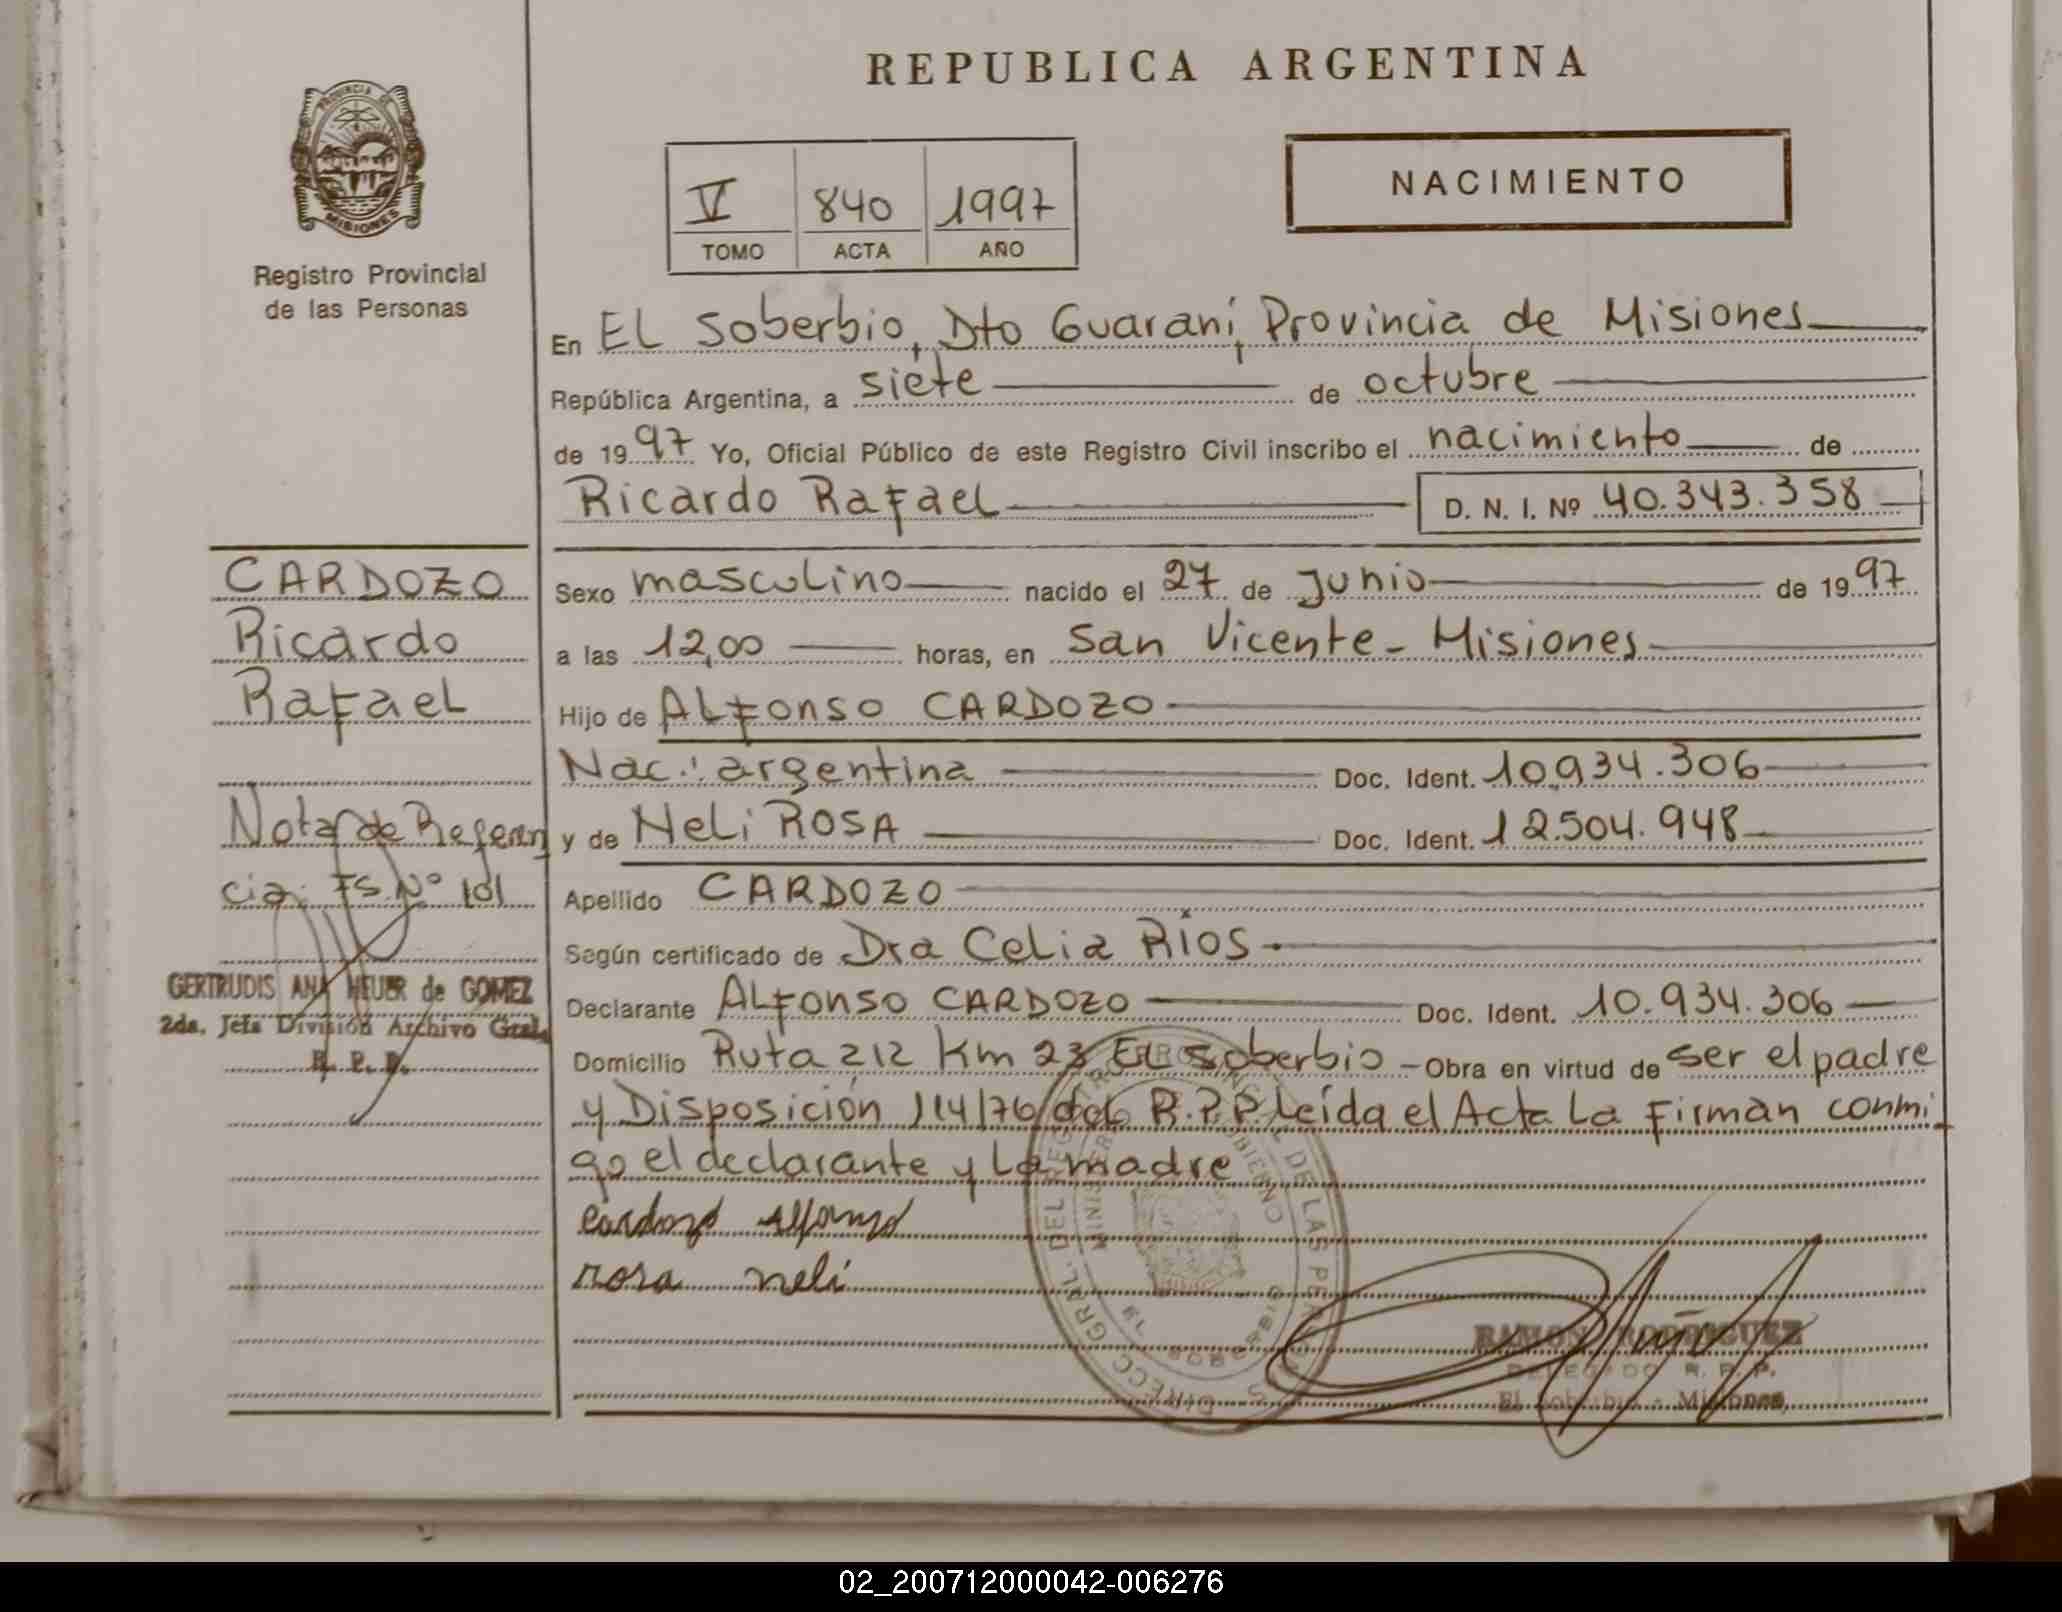 REPUBLICA ARGENTINA
PROVINCIA DE
MISIONES
Registro Provincial
de las Personas
V 840 1997
TOMO ACTA AÑO
NACIMIENTO
En EL Soberbio, Dto Guaraní, Provincia de Misiones
República Argentina, a siete de octubre
de 1997 Yo, Oficial Público de este Registro Civil inscribo el nacimiento de
Ricardo Rafael D. N. I. Nº 40.343.358
CARDOZO
Ricardo
Rafael
Nota de Referen
cia: FS. Nº 101
GERTRUDIS ANA HEUER de GOMEZ
2da. Jefa División Archivo Gral.
R. P. P.
Sexo masculino nacido el 27 de Junio de 1997
a las 12,00 horas, en San Vicente - Misiones
Hijo de ALfonso CARDOZO
Nac.: argentina Doc. Ident. 10.934.306
y de NeLi ROSA Doc. Ident. 12.504.948
Apellido CARDOZO
Según certificado de Dra Celia Ríos
Declarante ALfonso CARDOZO Doc. Ident. 10.934.306
Domicilio Ruta 212 Km 23 EL Soberbio - Obra en virtud de ser el padre
y Disposición 114/76 del R.P.P. Leída el Acta La Firman conmi
go el declarante y La madre
Cardozo Alfonso
rosa neli
DIRECC. GRAL. DEL REGISTRO PROVINCIAL DE LAS PERSONAS
MINISTERIO GOBIERNO
EL SOBERBIO
RAMON RODRIGUEZ
DELEGADO R. P. P.
El Soberbio - Misiones
02_200712000042-006276